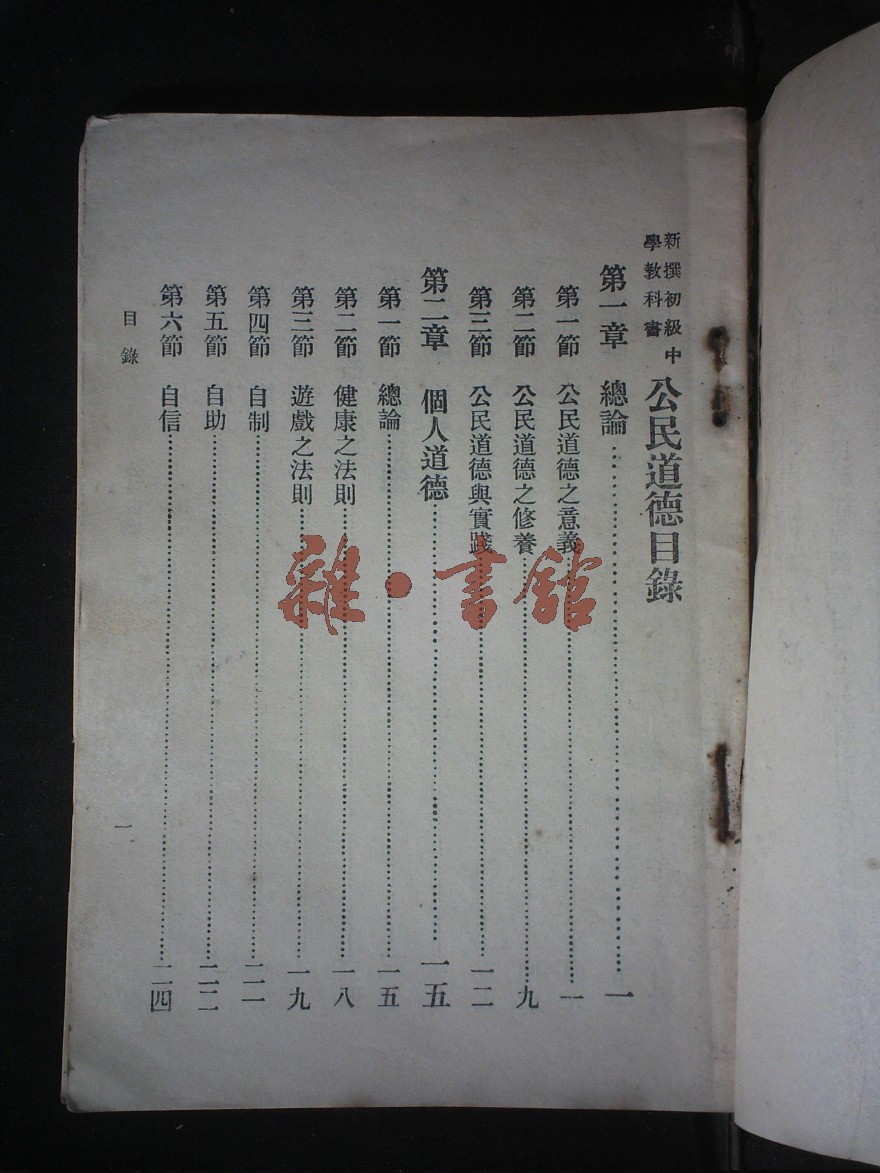 新撰初級中
學教科書
公民道德目錄
第一章 總論 一
第一節 公民道德之意義 一
第二節 公民道德之修養 九
第三節 公民道德與實踐 一二
第二章 個人道德 一五
第一節 總論 一五
第二節 健康之法則 一八
第三節 遊戲之法則 一九
第四節 自制 二一
第五節 自助 二二
第六節 自信 二四
目錄
一
雜·書館